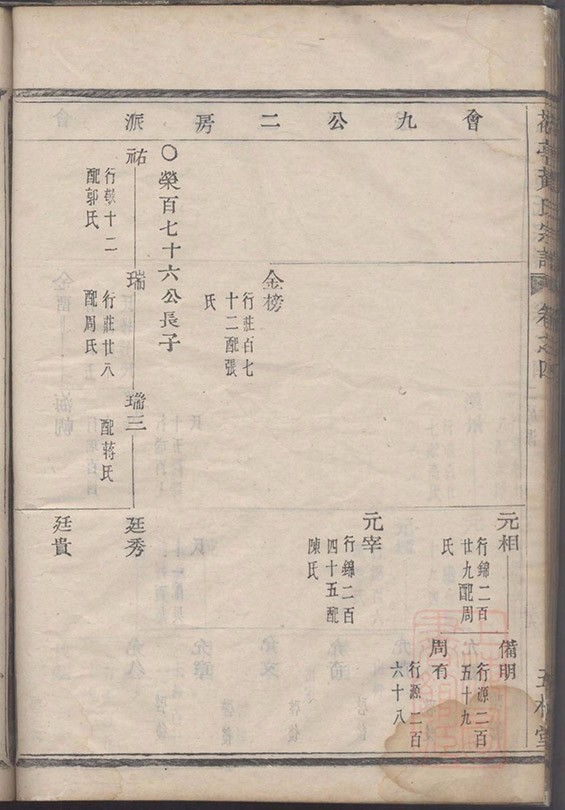 黃氏宗譜 卷之四
會九公二房派
元相
行錦二百
廿九配周
氏
備明
行源二百
五十九
周有
行源二百
六十八
元宰
行錦二百
四十五配
陳氏
金榜
行莊百七
十二配張
氏
○榮百七十六公長子
祐
行敬十二
配郭氏
瑞
行莊廿八
配周氏
瑞三
配蔣氏
廷秀
廷貴